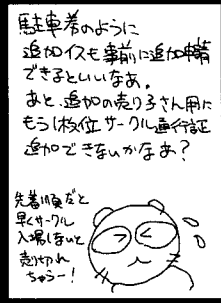 駐車券のように
追加イスも事前に追加申請
できるといいなあ。
あと、追加の売り子さん用に
もう1枚位サークル通行証
追加できないかなあ？
先着順だと
早くサークル
入場しないと
売り切れ
ちゃうー！